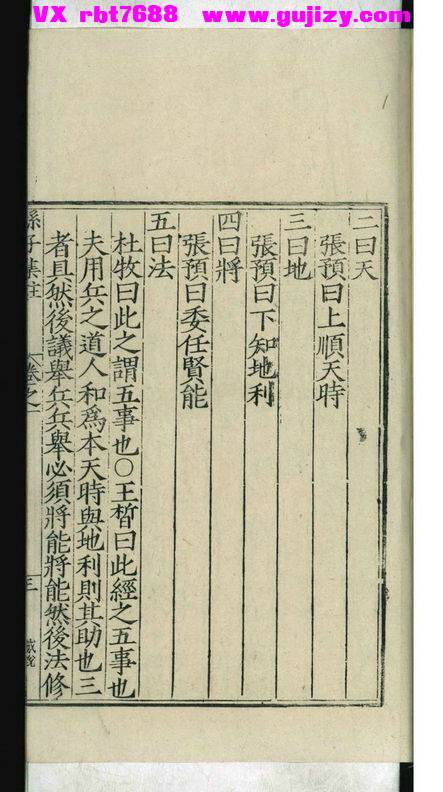 VX rbt7688 www.gujizy.com
二曰天
張預曰上順天時
三曰地
張預曰下知地利
四曰將
張預曰委任賢能
五曰法
杜牧曰此之謂五事也○王晳曰此經之五事也
夫用兵之道人和爲本天時與地利則其助也三
者具然後議舉兵兵舉必須將能將能然後法修
孫子集註 卷之一 三